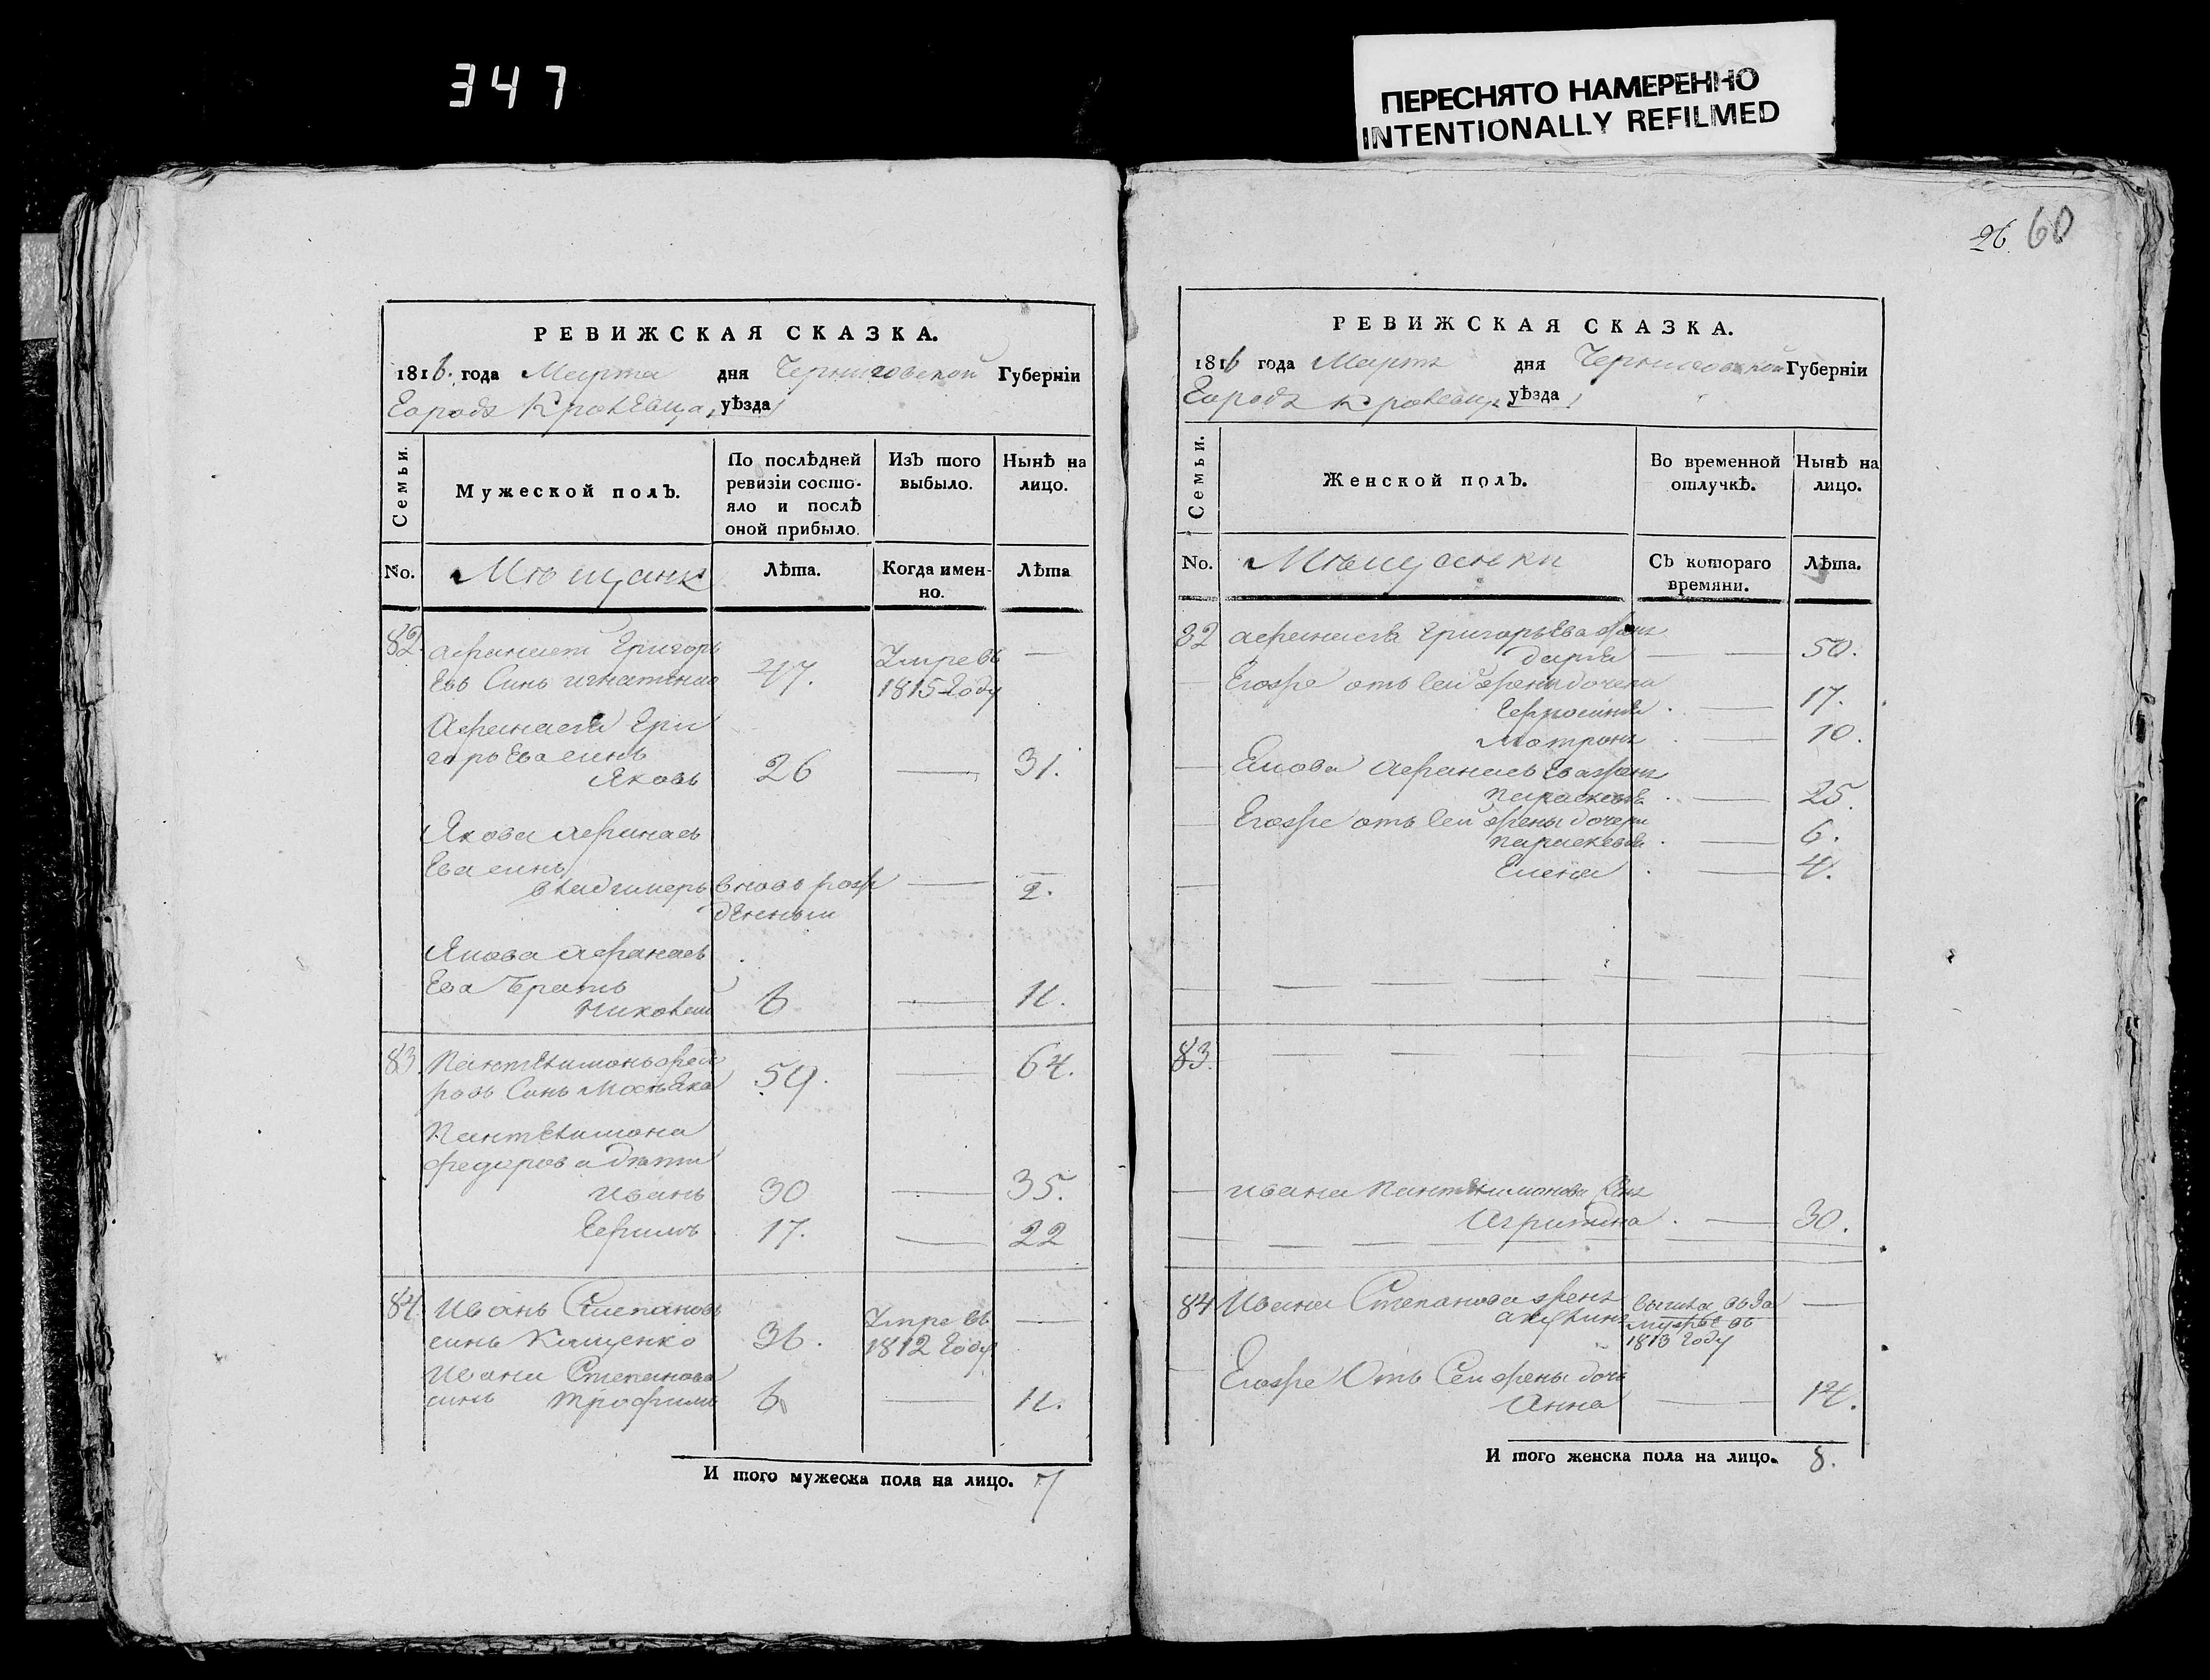 347
ПЕРЕСНЯТО НАМЕРЕННО
INTENTIONALLY REFILMED
РЕВИЖСКАЯ СКАЗКА.
1816. года Марта дня Черниговской Губерніи
Города Кролевца, уѣзда
Семьи.
Мужеской полъ.
По послѣдней
ревизіи состо-
яло и послѣ
оной прибыло.
Изъ того
выбыло.
Нынѣ на
лицо.
No. Мѣщанѣ Лѣта. Когда имен-
но. Лѣта
82. Афанасей Григорь
евъ Синъ Игнатенко 47. Умре въ
1815 Году —
Афанасея Гри
горьева синъ
Яковъ 26 — 31.
Якова Афанась
ева синъ
Владимеръ вновь рож
денный — 2.
Якова Афанась
ева братъ
Николай 6 — 11.
83. Пантелимонъ Фед
ровъ Синъ 59. — 64.
Пантелимона
Федорова дѣти
Иванъ 30 — 35.
Ефимъ 17. — 22
84. Иванъ Степановъ
синъ Кащенко 36. Умре въ
1812 Году —
Ивана Степанова
синъ Трофимъ 6 — 11.
И того мужеска пола на лицо. 7
26. 60
РЕВИЖСКАЯ СКАЗКА.
1816 года Марта дня Черниговской Губерніи
Города Кролевца уѣзда
Семьи.
Женской полъ.
Во временной
отлучкѣ.
Нынѣ на
лицо.
No. Мѣщанки Съ котораго
времяни. Лѣта.
82 Афанасея Григорьева жена
Дарья — 50.
Егоже отъ сей жены дочери
Ефросинья — 17.
Мотрона — 10.
Якова Афанасьева жена
Параскева — 25.
Егоже отъ сей жены дочери
Параскева — 6.
Елена — 4.
83.
Ивана Пантелимонова жена
Агрипина — 30.
84 Ивана Степанова жена
Акулина Вышла въ За
мужье въ
1813 Году —
Егоже Отъ Сей жены дочь
Анна — 14.
И того женска пола на лицо. 8.